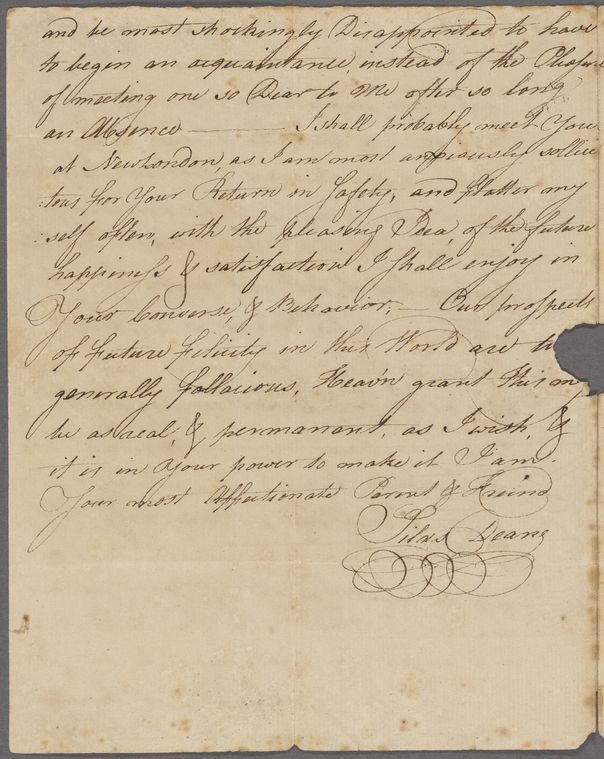 and be most shockingly Disappointed to have
to begin an acquaintance, instead of the Pleasure
of meeting one so Dear to Me after so long
an Absence ——— I shall probably meet You
at New London, as I am most anxiously sollici
:tous for Your Return in Safety, and flatter my
:self often, with the pleasing Idea, of the future
happiness & satisfaction I shall enjoy in
Your Converse, & Behavior; — Our prospects
of future felicity in this World are to
generally fallacious, Heav'n grant this m
be as real, & permanant, as I wish, &
it is in Your power to make it I am.
Your most Affectionate Parent & Freind
Silas Deane